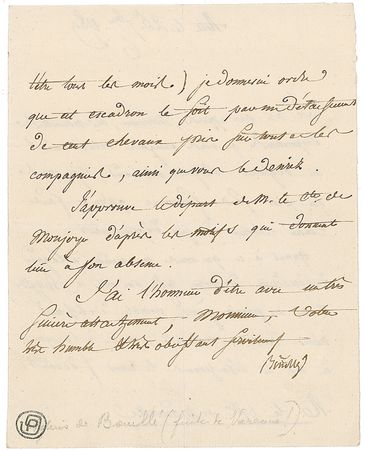 être tous les mois.) je donnerai ordre
que cet escadron le soit par un détachement
de cent chevaux pris sur toutes les
compagnies, ainsi que vous le desirés.
J'approuve le départ de M. le Cte. de
Monjoye d'après les motifs qui donnent
lieu à son absence.
J'ai l'honneur d'être avec un très
sincère attachement, Monsieur, Votre
très humble et très obéissant serviteur
Bouillé
de Bouillé (fuite de Varennes)